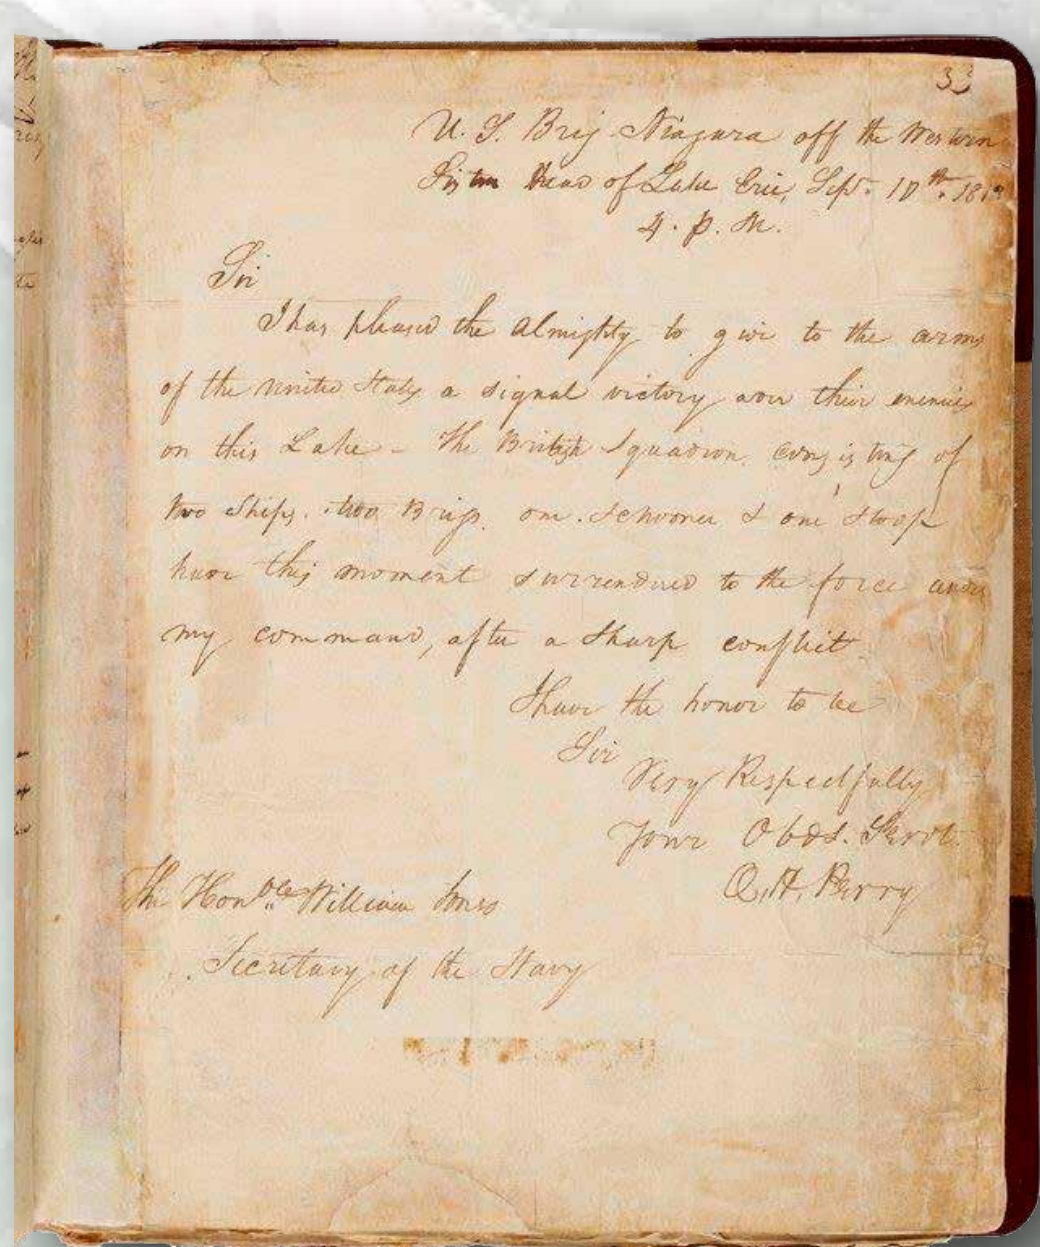 33
U. S. Brig Niagara off the Western
Sister Head of Lake Erie, Sept. 10th. 1813
4. p. m.
Sir
It has pleased the Almighty to give to the arms
of the United States a signal victory over their enemies
on this Lake - The British Squadron, consisting of
two Ships, two Brigs, one Schooner & one Sloop
have this moment surrendered to the force under
my command, after a Sharp conflict
I have the honor to be
Sir
Very Respectfully
Your Obdt. Servt.
O. H. Perry
The Honble William Jones
Secretary of the Navy